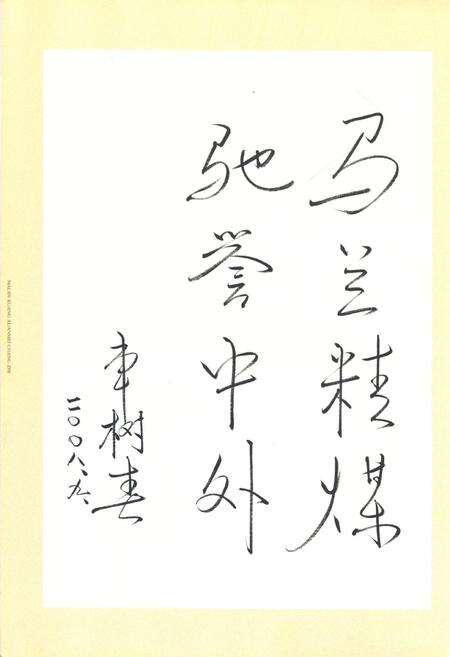 马兰精煤
驰誉中外
车树春
二〇〇八、九、